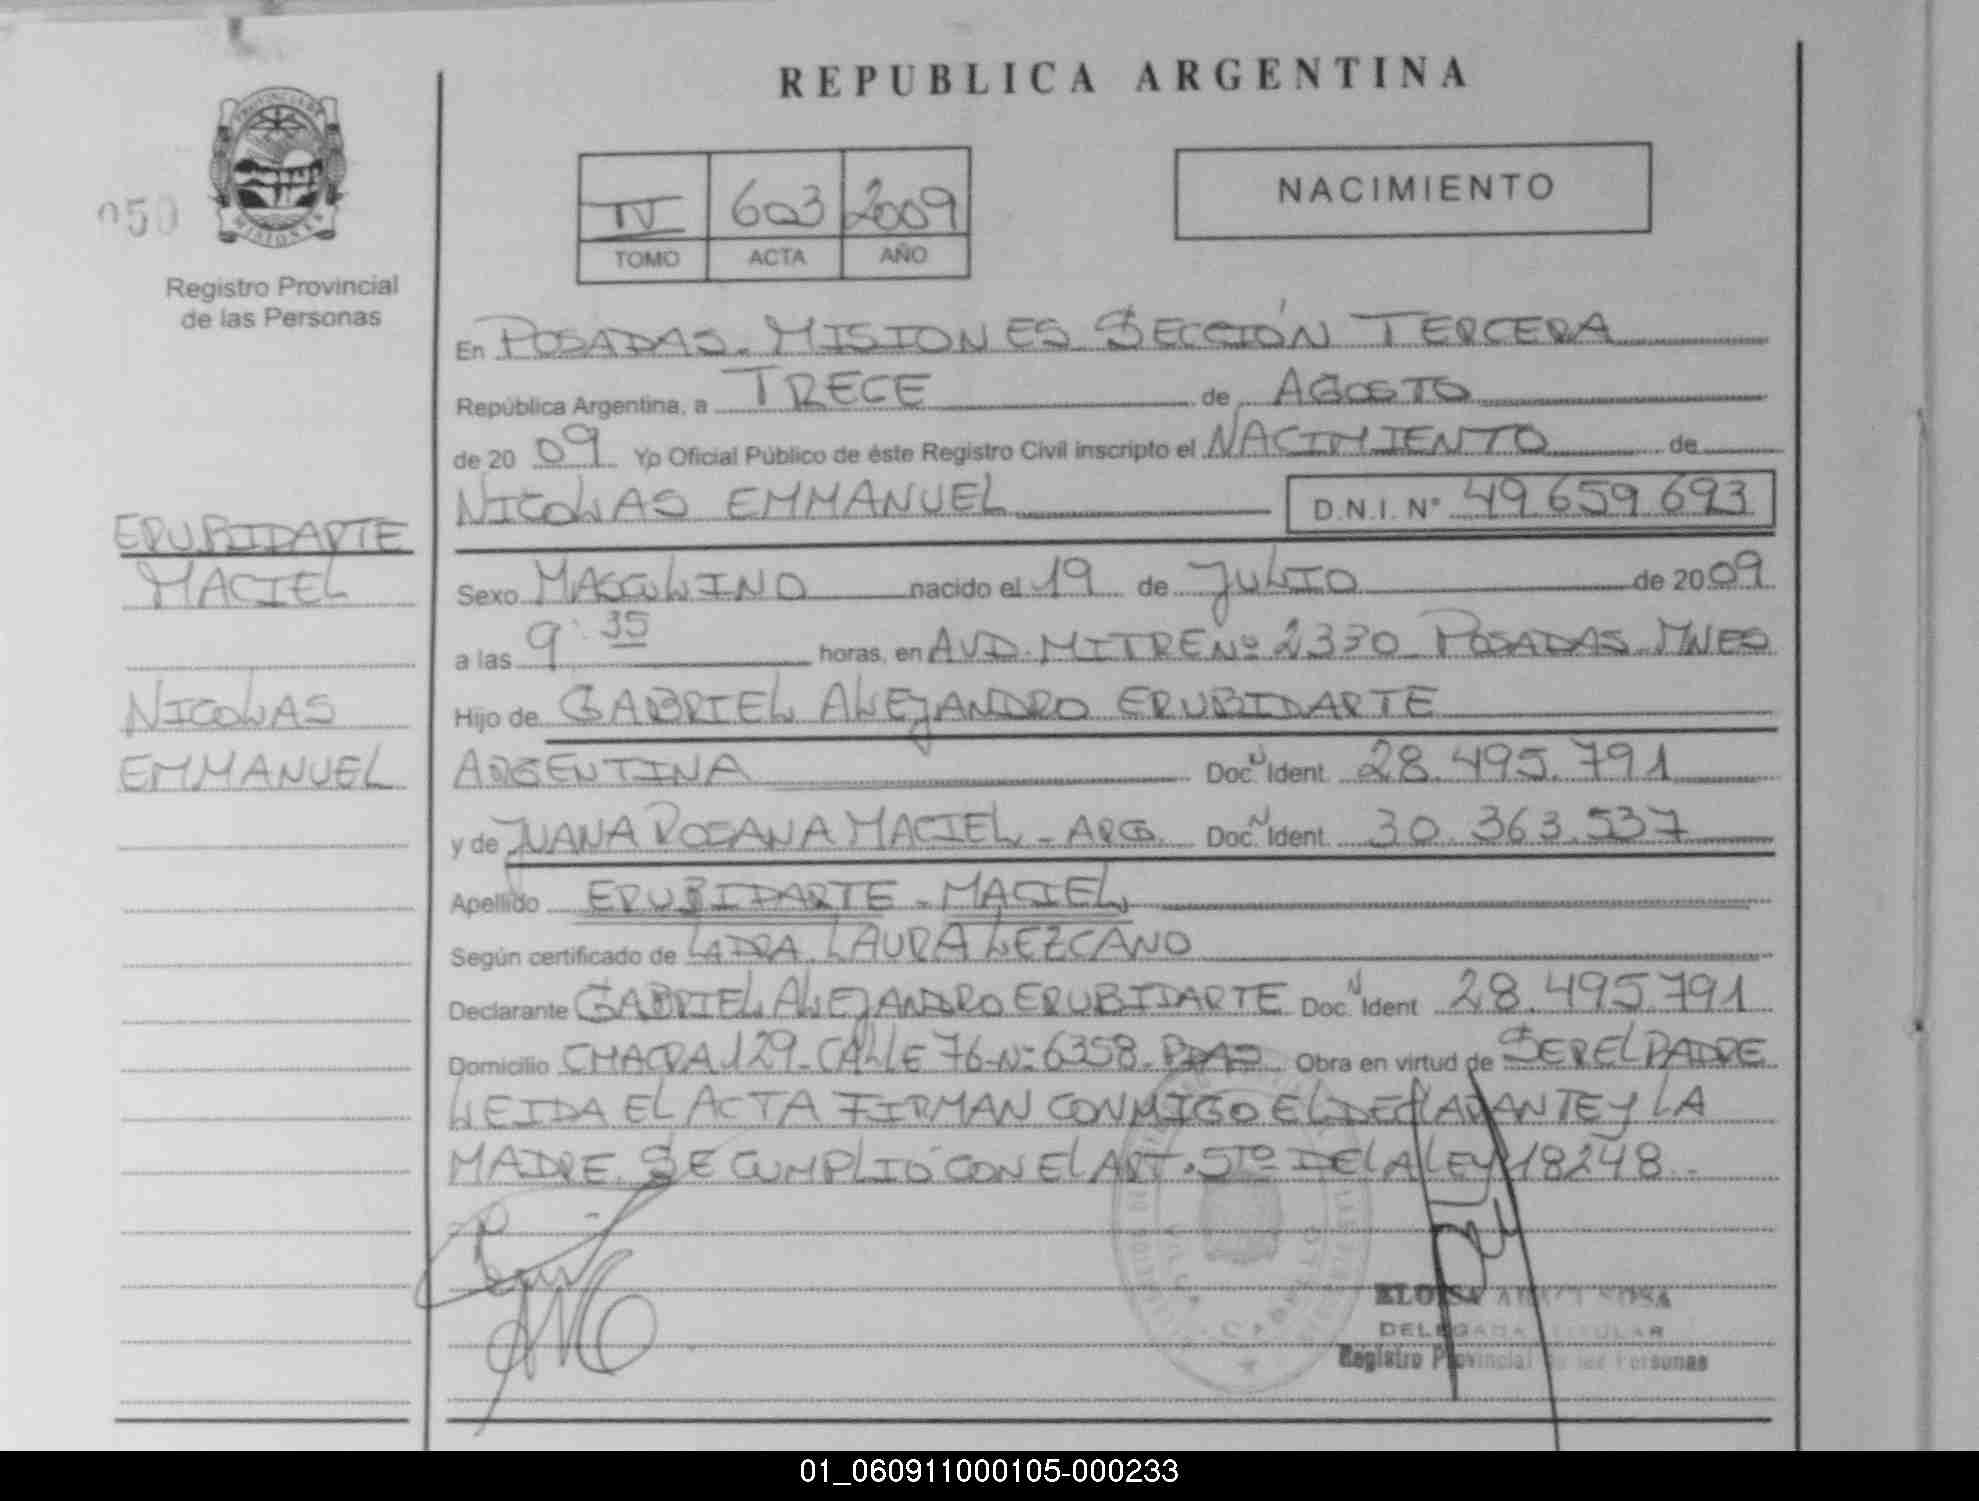 REPUBLICA ARGENTINA
PROVINCIA DE MISIONES
050
Registro Provincial
de las Personas
IV 603 2009
TOMO ACTA AÑO
NACIMIENTO
En POSADAS - MISIONES SECCIÓN TERCERA
República Argentina, a TRECE de AGOSTO
de 2009 Yo Oficial Público de éste Registro Civil inscripto el NACIMIENTO de
NICOLAS EMMANUEL D.N.I. Nº 49.659.693
ERUBIDARTE
MACIEL
NICOLAS
EMMANUEL
Sexo MASCULINO nacido el 19 de JULIO de 2009
a las 9:35 horas, en AVD. MITRE Nº 2330 POSADAS. MNES
Hijo de GABRIEL ALEJANDRO ERUBIDARTE
ARGENTINA Doc. N Ident. 28.495.791
y de JUANA ROSANA MACIEL - ARG. Doc. N Ident. 30.363.537
Apellido ERUBIDARTE - MACIEL
Según certificado de LA DRA. LAURA LEZCANO
Declarante GABRIEL ALEJANDRO ERUBIDARTE Doc. N Ident. 28.495.791
Domicilio CHACRA 129 - CALLE 76 - Nº 6358 - PDAS Obra en virtud de SER EL PADRE
LEIDA EL ACTA FIRMAN CONMIGO EL DECLARANTE y LA
MADRE. SE CUMPLIO CON EL ART. 5TO DE LA LEY 18248.
ELOISA SOSA
DELEGADA TITULAR
Registro Provincial de las Personas
01_060911000105-000233